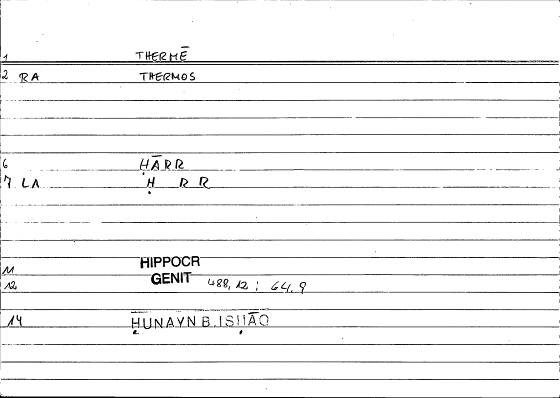 1 THERMĒ
2 RA THERMOS
6 ḤĀRR
7 LA Ḥ R R
11 HIPPOCR
12 GENIT 488,12 : 64,9
14 ḤUNAYN B. ISḤĀQ